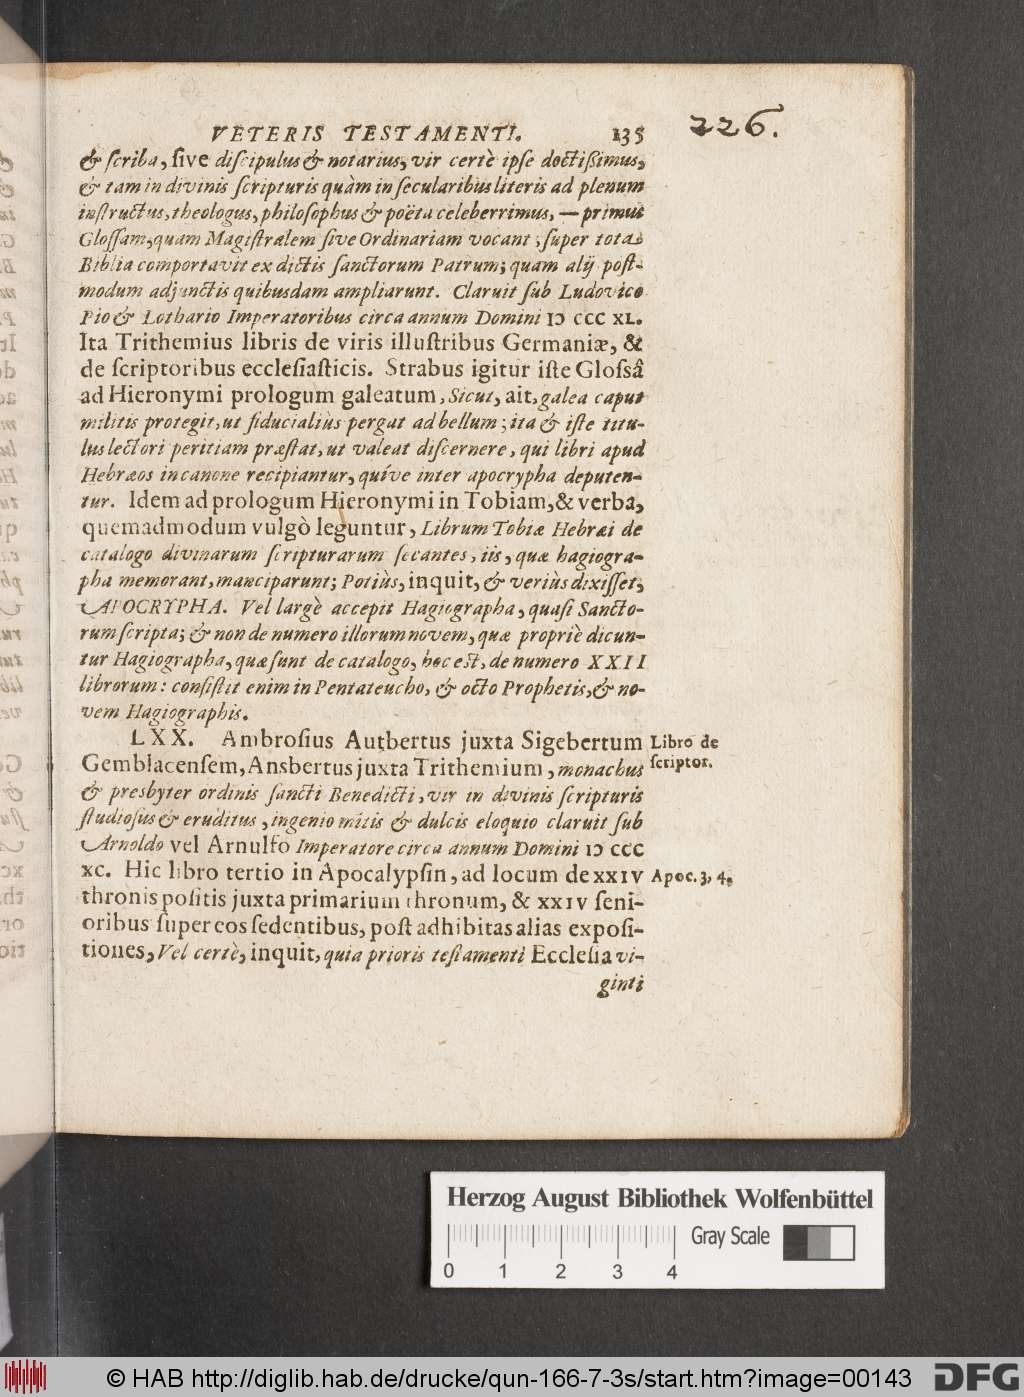 VETERIS TESTAMENTI. 135
226.
& ſcriba, ſive diſcipulus & notarius, vir certè ipſe doctiſſimus,
& tam in divinis ſcripturis quàm in ſecularibus literis ad plenum
inſtructus, theologus, philoſophus & poëta celeberrimus, — primus
Gloſſam, quam Magiſtralem ſive Ordinariam vocant, ſuper tota
Biblia comportavit ex dictis ſanctorum Patrum; quam alij poſt-
modum adjunctis quibusdam ampliarunt. Claruit ſub Ludovico
Pio & Lothario Imperatoribus circa annum Domini IↃ CCC XL.
Ita Trithemius libris de viris illuſtribus Germaniæ, &
de ſcriptoribus eccleſiaſticis. Strabus igitur iſte Gloſsâ
ad Hieronymi prologum galeatum, Sicut, ait, galea caput
militis protegit, ut fiducialiùs pergat ad bellum; ita & iſte titu-
lus lectori peritiam præſtat, ut valeat diſcernere, qui libri apud
Hebræos in canone recipiantur, quíve inter apocrypha deputen-
tur. Idem ad prologum Hieronymi in Tobiam, & verba,
quemadmodum vulgò leguntur, Librum Tobiæ Hebræi de
catalogo divinarum ſcripturarum ſecantes, iis, quæ hagiogra-
pha memorant, manciparunt; Potiùs, inquit, & veriùs dixiſſet,
APOCRYPHA. Vel largè accepit Hagiographa, quaſi Sancto-
rum ſcripta; & non de numero illorum novem, quæ propriè dicun-
tur Hagiographa, quæ ſunt de catalogo, hoc est, de numero XXII
librorum: conſiſtit enim in Pentateucho, & octo Prophetis, & no-
vem Hagiographis.
LXX. Ambroſius Autbertus juxta Sigebertum
Libro de
Gemblacenſem, Ansbertus juxta Trithemium, monachus
ſcriptor.
& presbyter ordinis ſancti Benedicti, vir in divinis ſcripturis
ſtudioſus & eruditus, ingenio mitis & dulcis eloquio claruit ſub
Arnoldo vel Arnulfo Imperatore circa annum Domini IↃ CCC
XC. Hic libro tertio in Apocalypſin, ad locum de XXIV
Apoc. 3, 4.
thronis poſitis juxta primarium thronum, & XXIV ſeni-
oribus ſuper eos ſedentibus, poſt adhibitas alias expoſi-
tiones, Vel certè, inquit, quia prioris teſtamenti Eccleſia vi-
ginti
Herzog August Bibliothek Wolfenbüttel
Gray Scale
0 1 2 3 4
© HAB http://diglib.hab.de/drucke/qun-166-7-3s/start.htm?image=00143
DFG